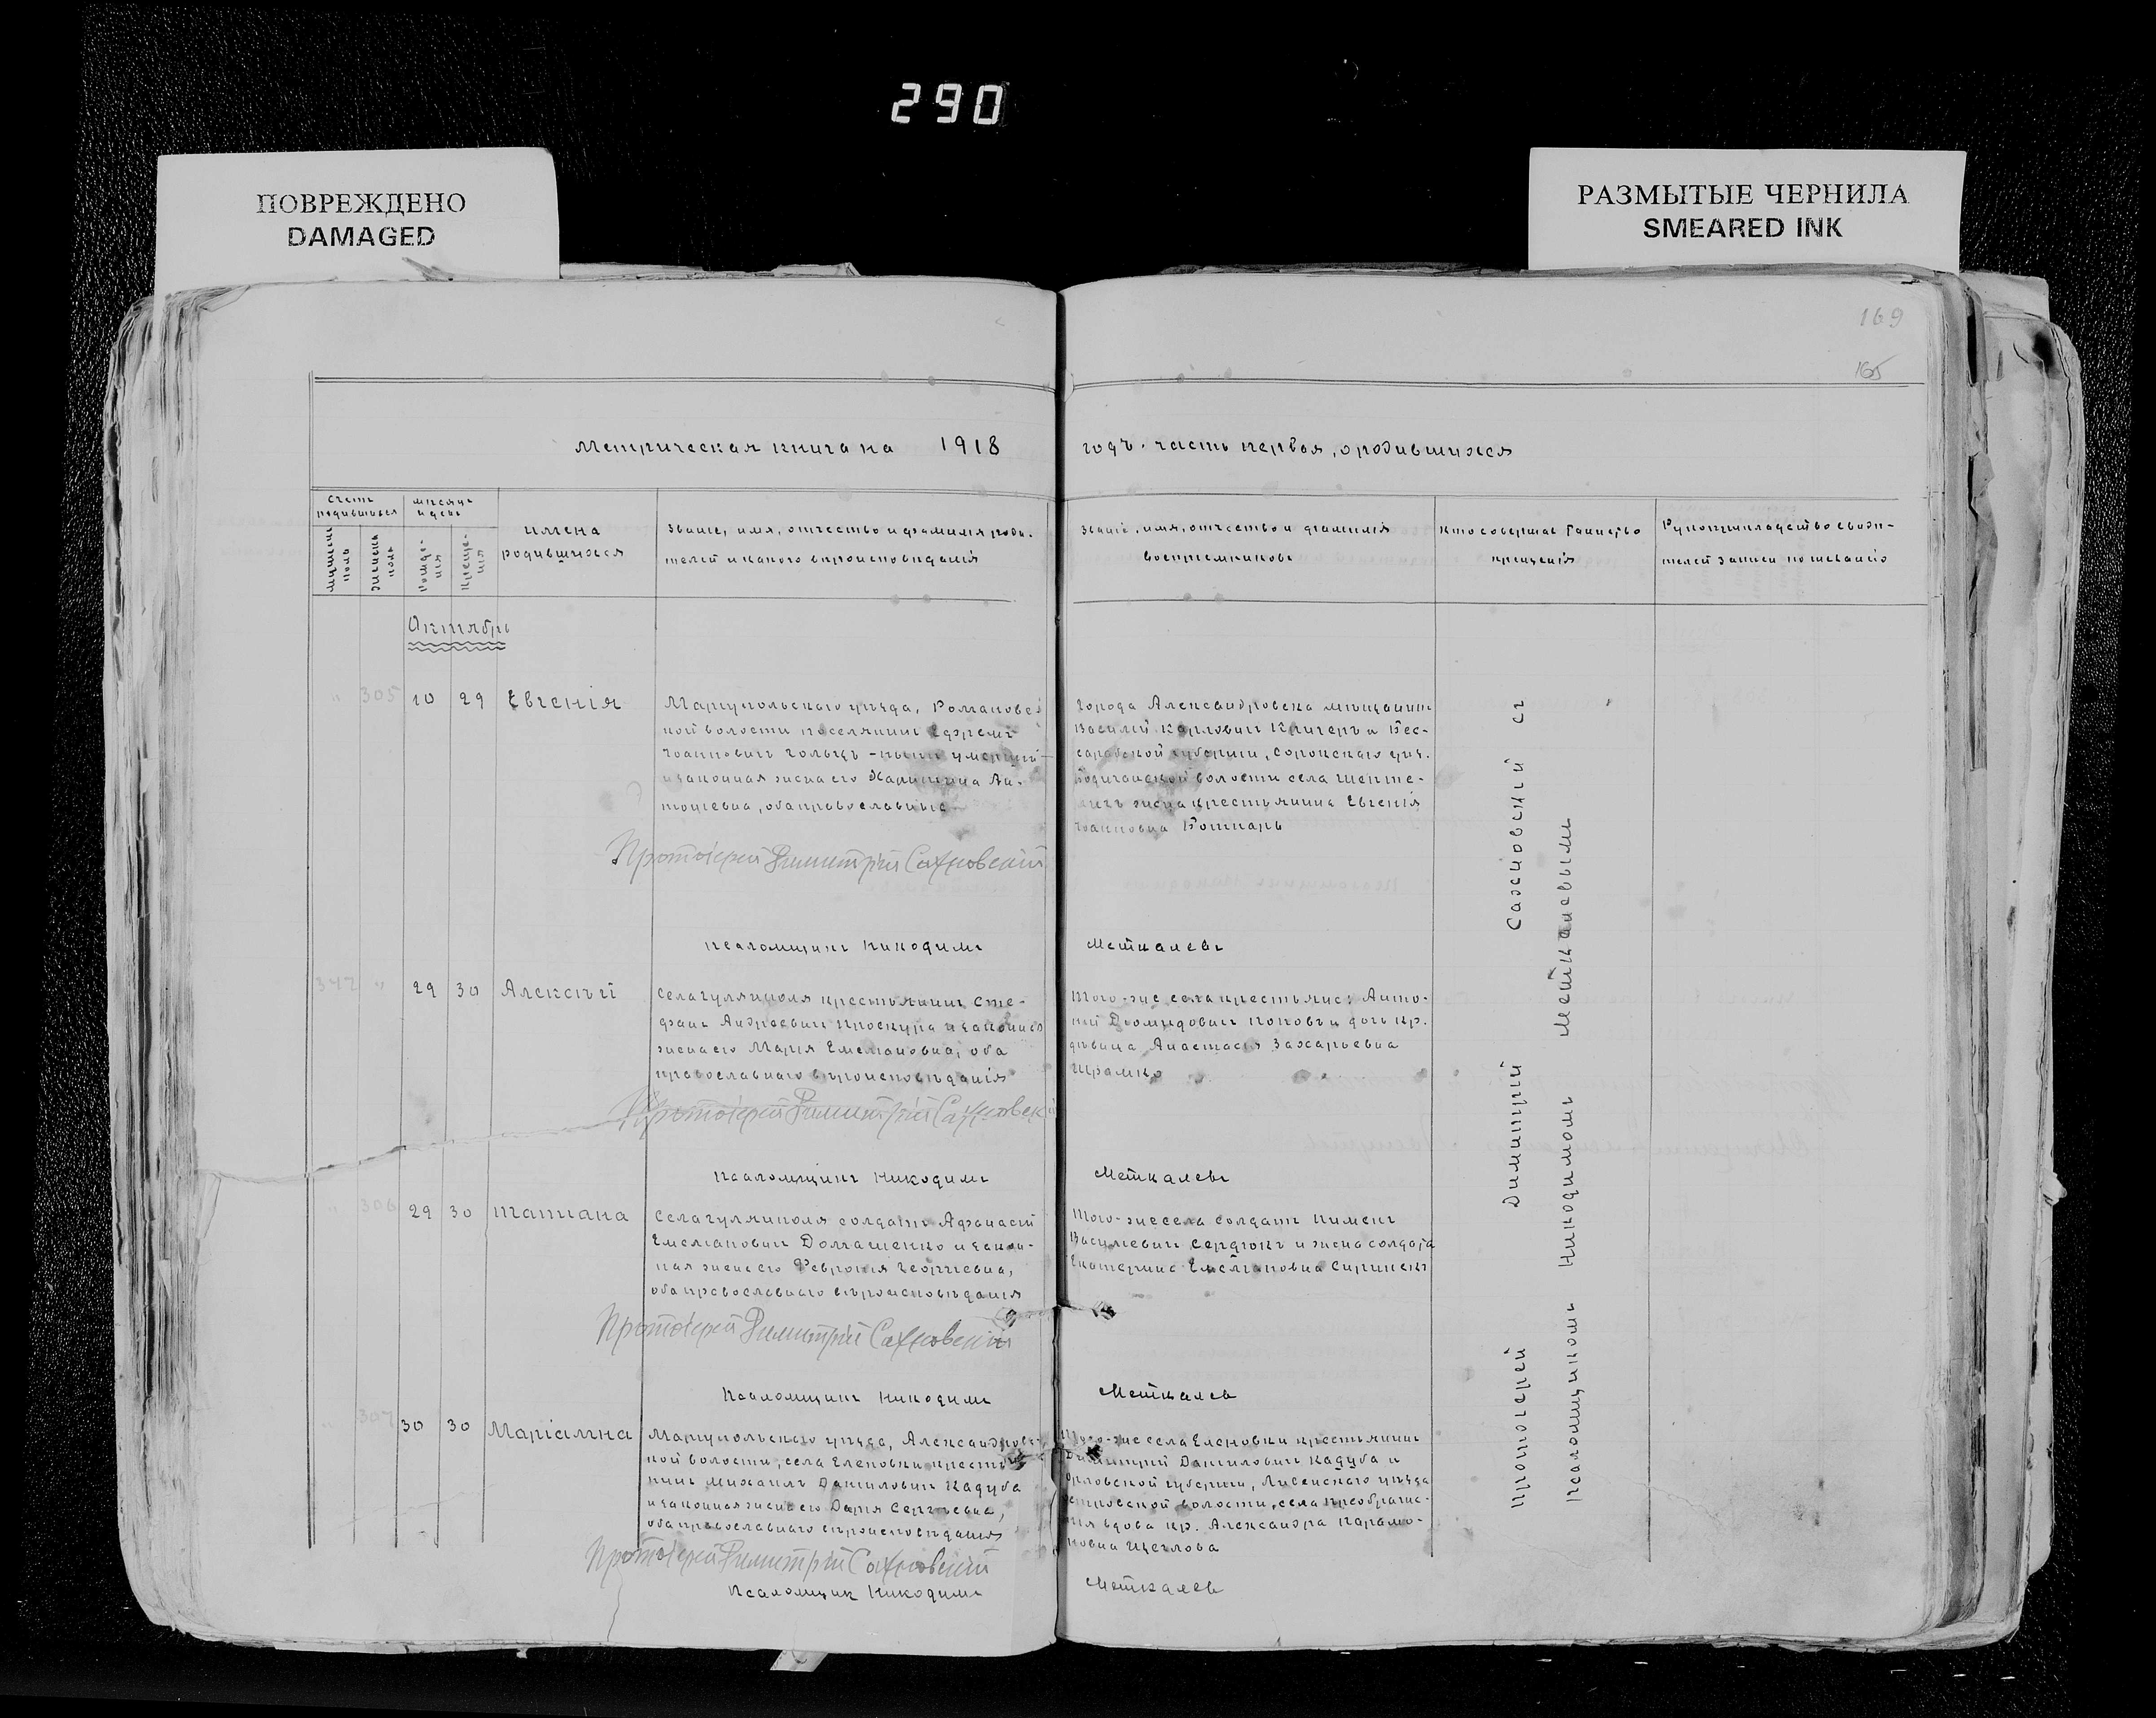 290
ПОВРЕЖДЕНО
DAMAGED
РАЗМЫТЫЕ ЧЕРНИЛА
SMEARED INK
169
165
Метрическая книга на 1918
годъ. часть первая, о родившихся
Счетъ родившихся
мѣсяцъ и день
мужеска полъ
женска полъ
рожденія
крещенія
имена
родившихся
Званіе, имя, отчество и фамилія роди-
телей и какого вѣроисповѣданія
Званіе, имя, отчество и фамилія
воспріемниковъ
Кто совершалъ таинство
крещенія
Рукоприкладство свидѣ-
телей записи по желанію
Октябрь
" 305 10 29 Евгенія
Маріупольскаго уѣзда, Романовс
кой волости поселянинъ Ефремъ
Іоанновичъ Гольцъ - нынѣ умершій
и законная жена его Ан-
тоніевна, оба православные
Протоіерей Димитрій Сахновскій
Города Александровска мѣщанинъ
Василій Карловичъ Кригеръ и Бес-
сарабской губерніи, Сорокскаго уѣз.
волости села Шепте-
жена крестьянина Евгенія
Іоанновна Бошкарь
Псаломщикъ Никодимъ
Меткалевъ
347 " 29 30 Алексѣй
Села Гуляйполя крестьянинъ Сте-
фанъ Андреевичъ Проскура и законная
жена его Марія Емеліановна, оба
православнаго вѣроисповѣданія
Протоіерей Димитрій Сахновскі
Того-же села крестьяне: Анто-
ній Діомидовичъ Поповъ и дочь кр.
дѣвица Анастасія Захарьевна
Шрамко
Псаломщикъ Никодимъ
Меткалевъ
" 306 29 30 Татіана
Села Гуляйполя солдатъ Афанасій
Емеліановичъ Домашенко и закон-
ная жена его Февронія Георгіевна,
оба православнаго вѣроисповѣданія
Протоіерей Димитрій Сахновскій
Того-же села солдатъ Пименъ
Василіевичъ Сердюкъ и жена солдата
Екатерина Емеліановна
Псаломщикъ Никодимъ
Меткалев
" 307 30 30 Маріамна
Маріупольскаго уѣзда, Александровс
кой волости, села Еленовки крестья
нинъ Михаилъ Даниловичъ Кадуба
и законная жена его Дарія Сергѣевна,
оба православнаго вѣроисповѣданія
Протоіерей Димитрій Сахновскій
Того-же села Еленовки крестьянинъ
Димитрій Даниловичъ Кадуба и
Орловской губерніи, Ливенскаго уѣзда
волости, села Преображе-
нія вдова кр. Александра Парамо-
новна Щеглова
Псаломщик Никодимъ
Меткалев
Протоіерей Димитрій Сахновскій съ
Псаломщикомъ Никодимомъ Меткалевымъ